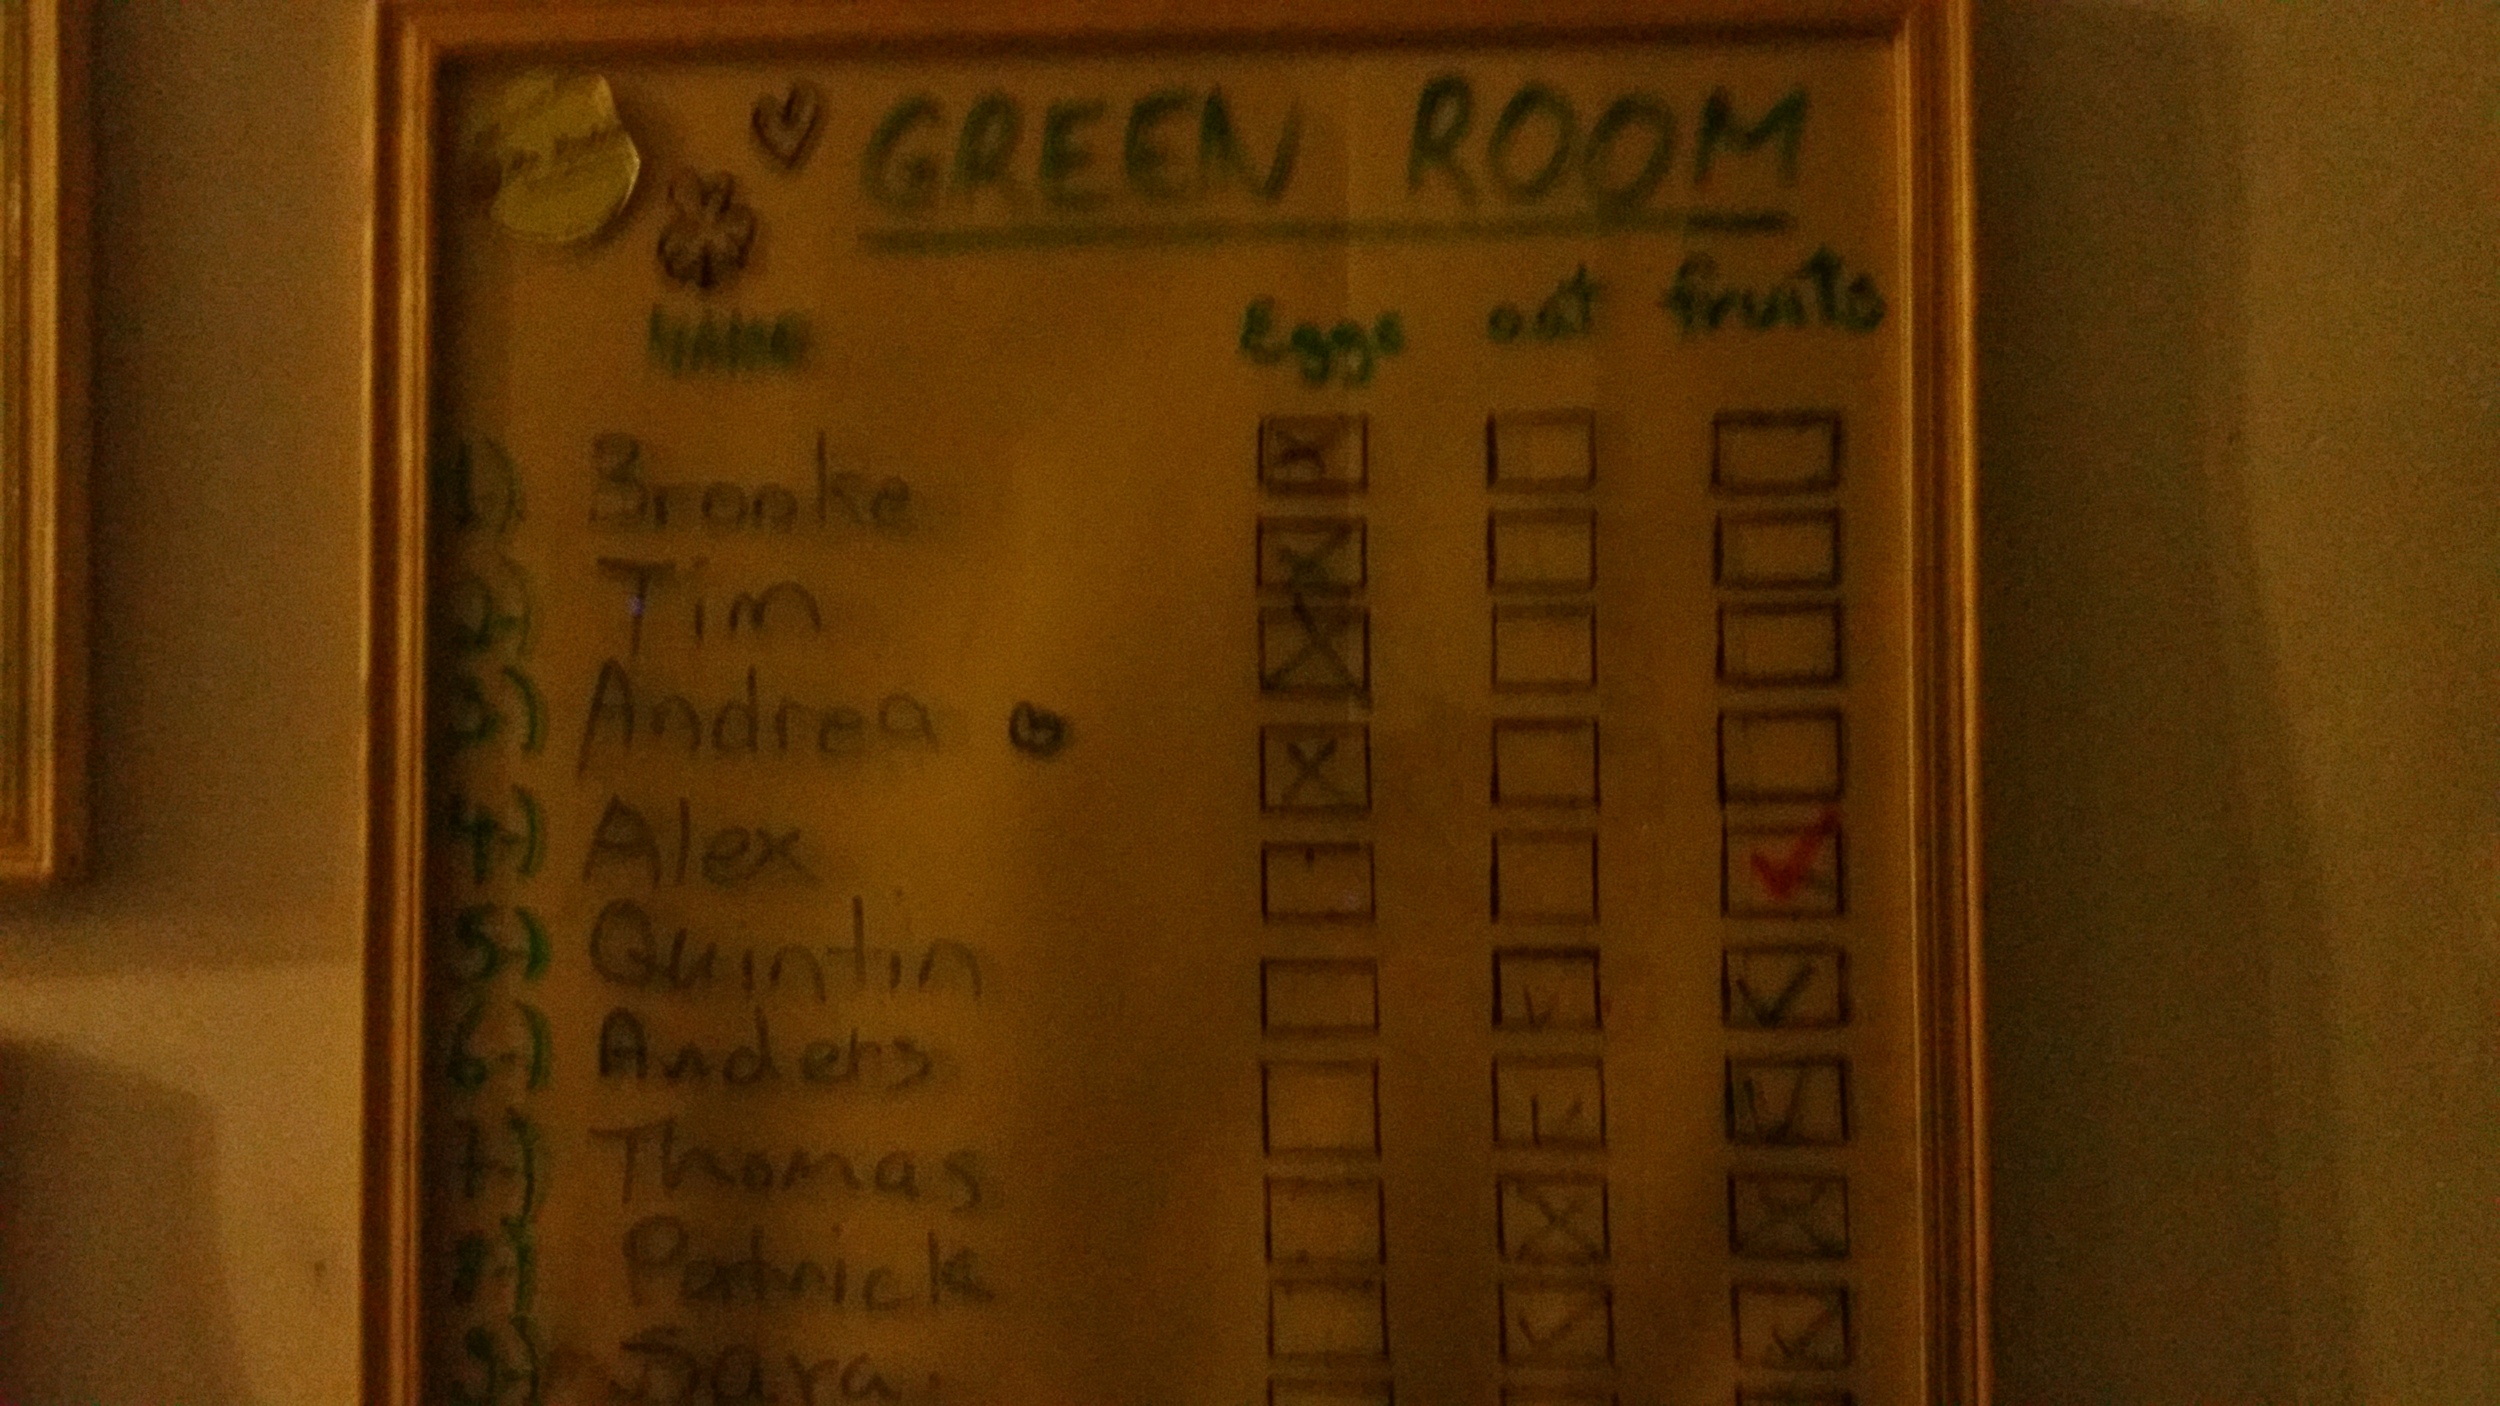 GREEN ROOM
NAME Eggs oat fruits
1) Brooke
2-) Tim
3-) Andrea
4-) Alex
5-) Quintin
6-) Anders
7-) Thomas
8-) Patrick
9-) Sara